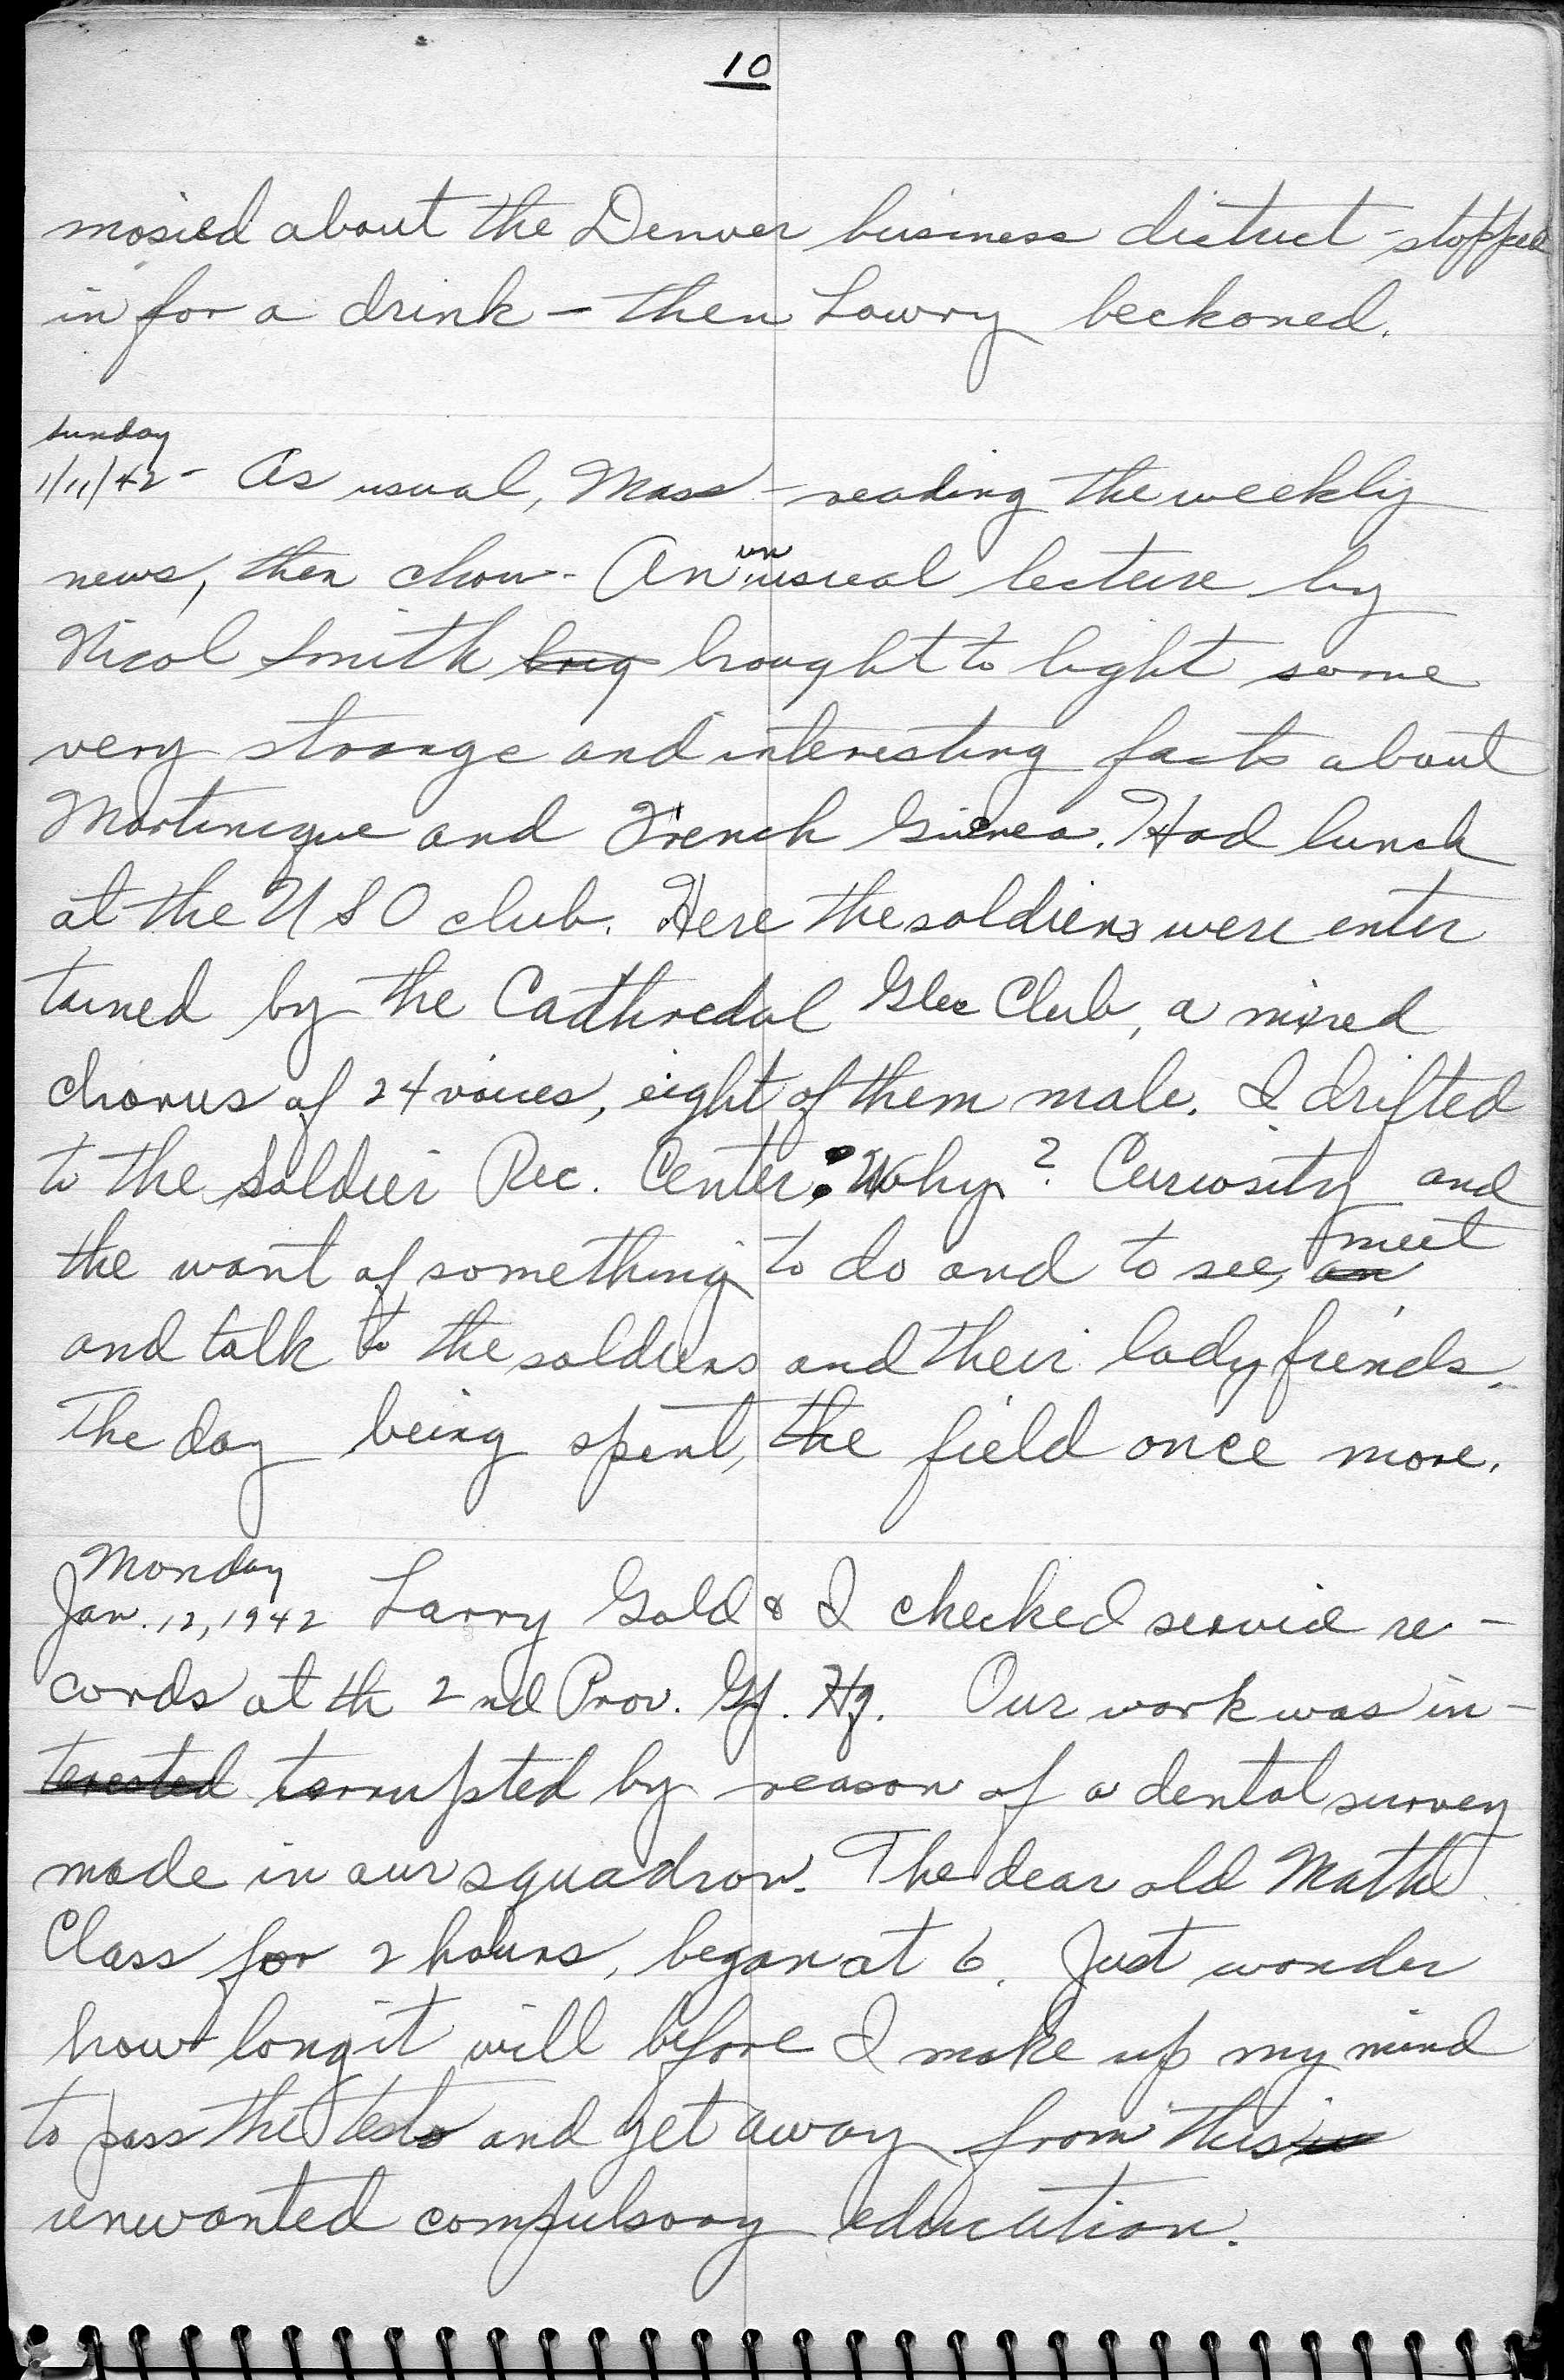 10
mosied about the Denver business district - stopped
in for a drink - then Lowry beckoned.
Sunday
1/11/42 - As usual, Mass - reading the weekly
news, then chow - An unusual lecture by
Nicol Smith brog brought to light some
very strange and interesting facts about
Martinique and French Guinea. Had lunch
at the USO club. Here the soldiers were enter
tained by the Cathredal Glee Club, a mixed
chorus of 24 voices, eight of them male. I drifted
to the Soldier Rec. Center; Why? Curiosity and
the want of something to do and to see, an meet
and talk to the soldiers and their lady friends.
The day being spent, the field once more.
Monday
Jan. 12, 1942 Larry Gold & I checked service re-
cords at th 2nd Prov. Gp. Hq. Our work was in-
terested terrupted by reason of a dental survey
made in our squadron. The dear old Math
Class for 2 hours, began at 6. Just wonder
how long it will before I make up my mind
to pass the tests and get away from this
unwanted compulsory education.